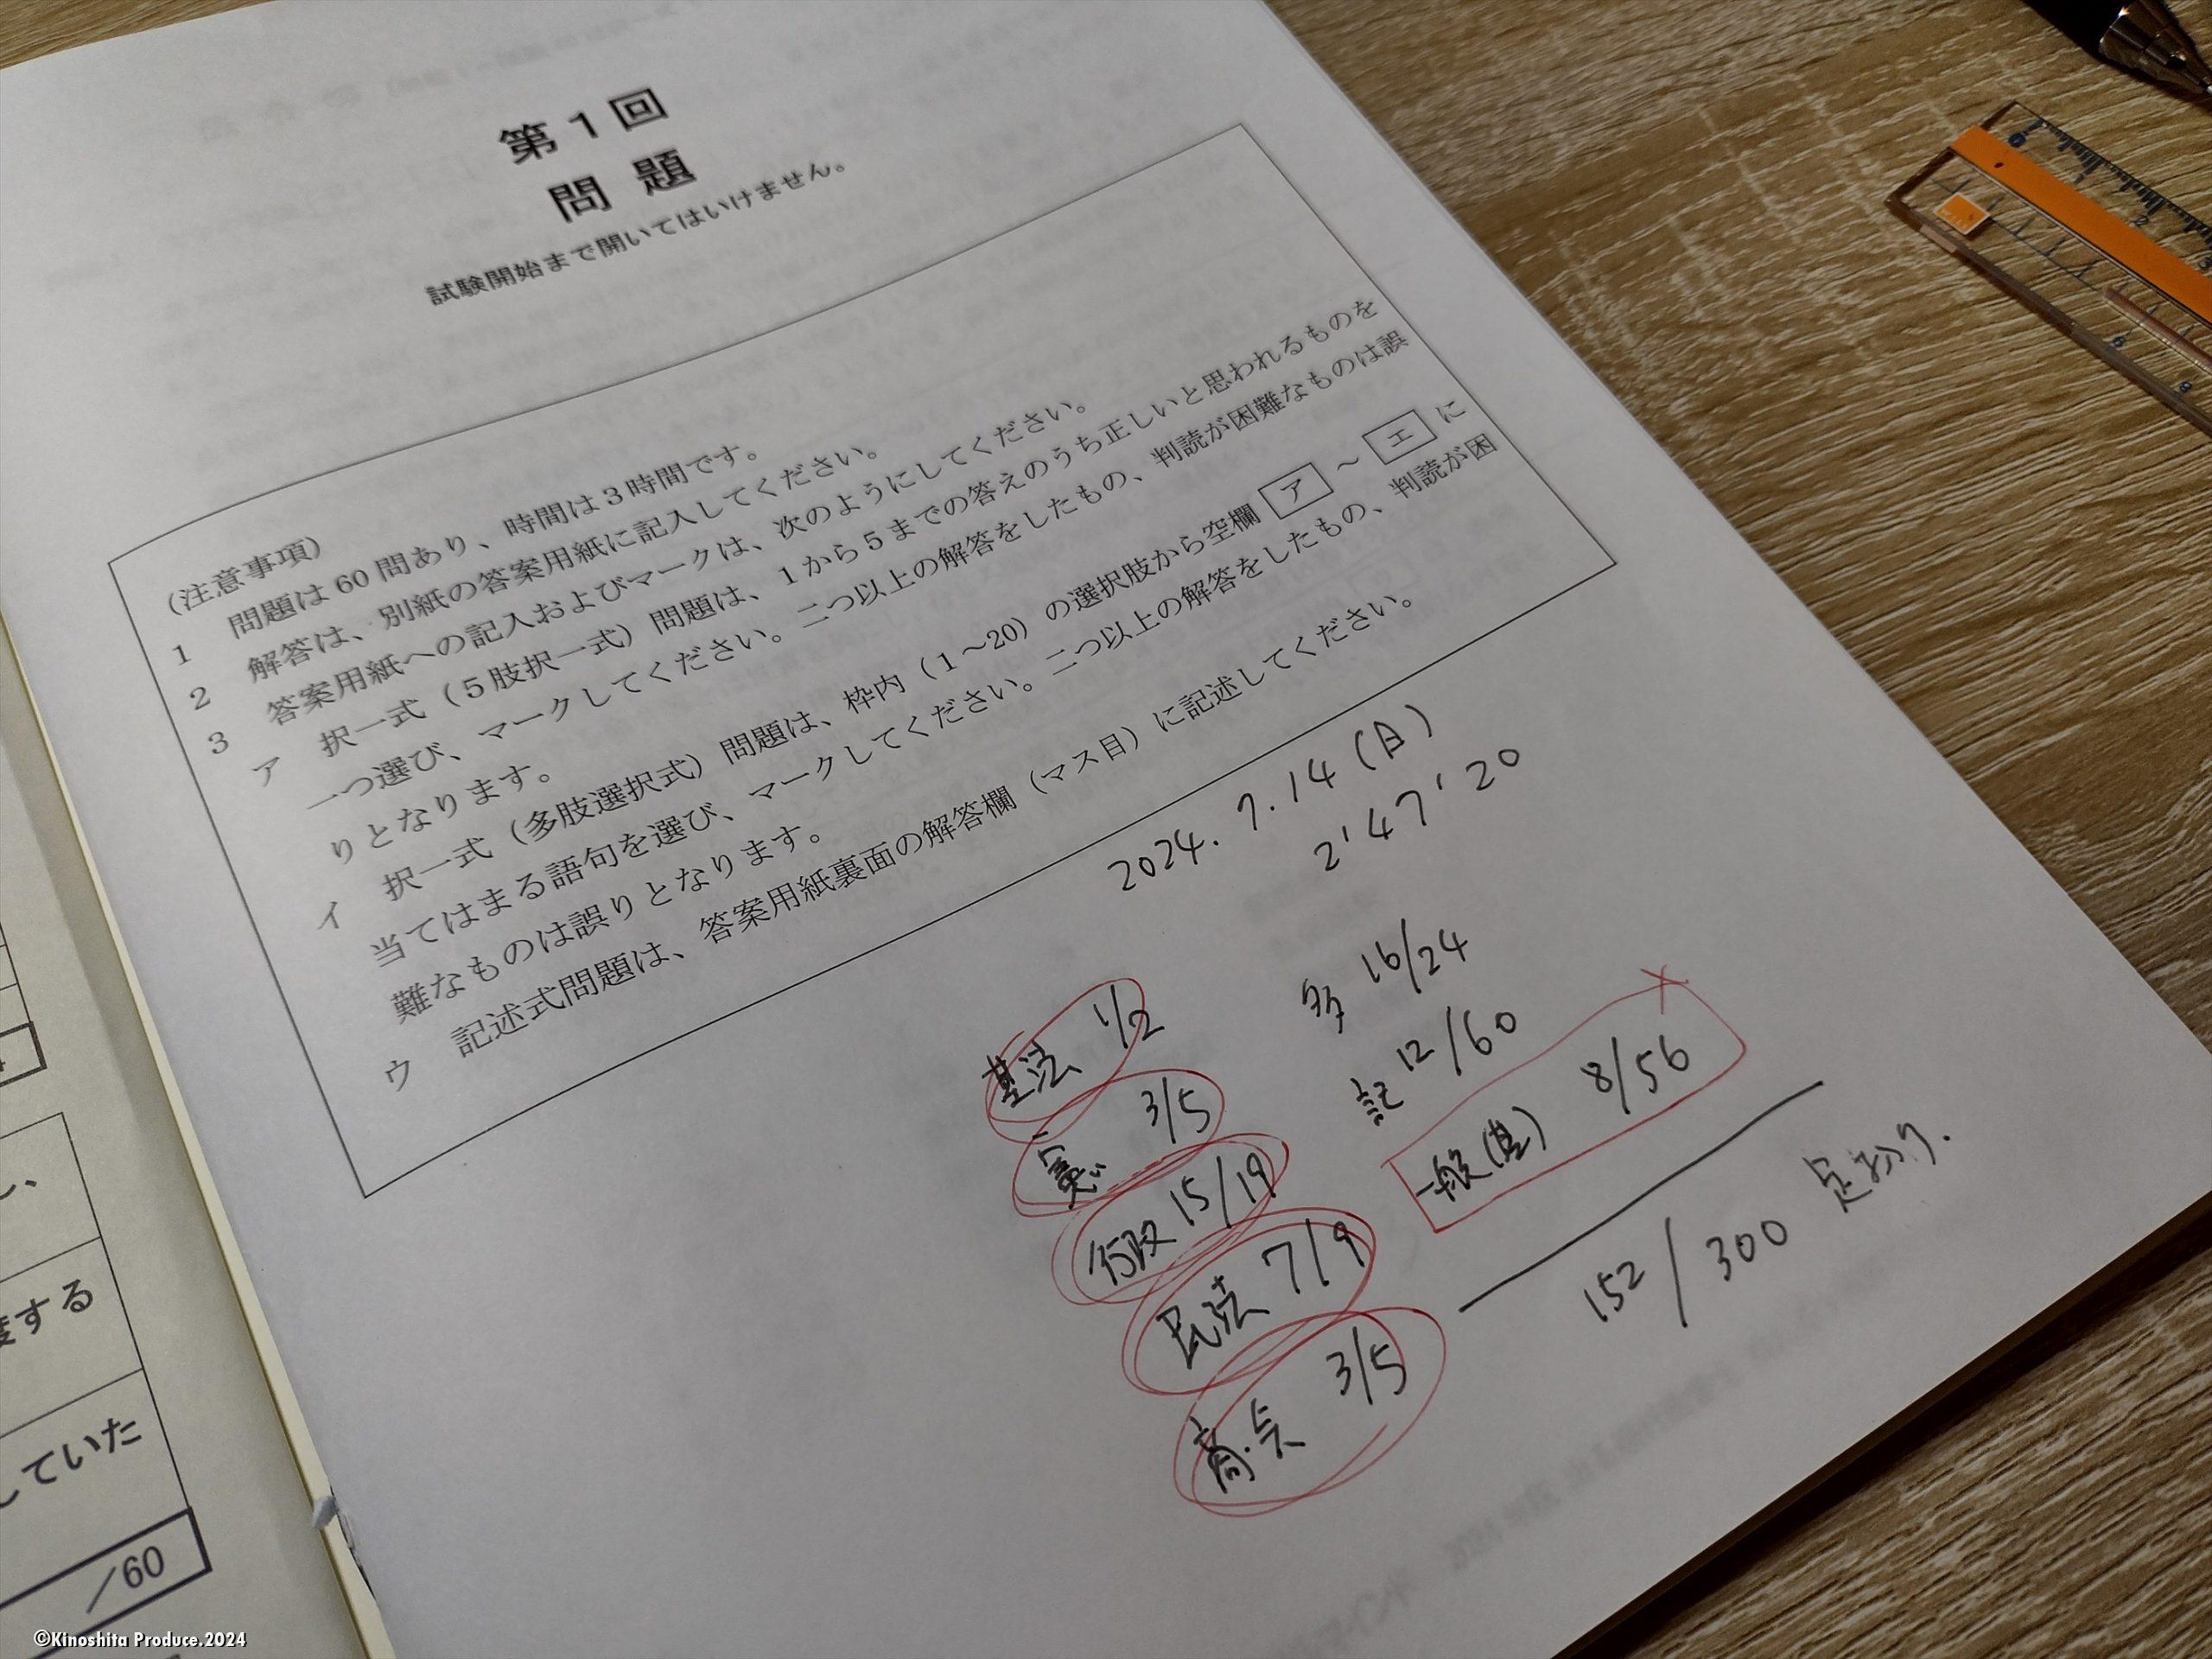 第1回
問題
試験開始まで開いてはいけません。
（注意事項）
1 問題は60問あり、時間は3時間です。
2 解答は、別紙の答案用紙に記入してください。
3 答案用紙への記入およびマークは、次のようにしてください。
ア 択一式（5肢択一式）問題は、1から5までの答えのうち正しいと思われるものを
一つ選び、マークしてください。二つ以上の解答をしたもの、判読が困難なものは誤
りとなります。
イ 択一式（多肢選択式）問題は、枠内（1～20）の選択肢から空欄 ア ～ エ に
当てはまる語句を選び、マークしてください。二つ以上の解答をしたもの、判読が困
難なものは誤りとなります。
ウ 記述式問題は、答案用紙裏面の解答欄（マス目）に記述してください。
2024.7.14（日）
2'47'20
基法 1/2
憲 3/5
行政 15/19
民法 7/9
商・会 3/5
多 16/24
記 12/60
一般(基) 8/56
152/300 足切り.
度する
していた
/60
©Kinoshita Produce.2024